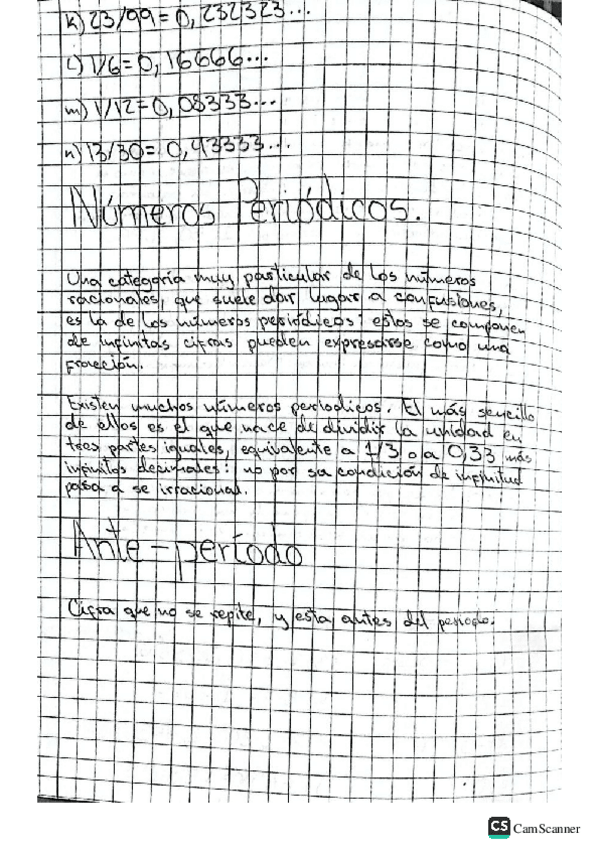 k) 23/99 = 0,232323...
l) 1/6 = 0,16666...
m) 1/12 = 0,08333...
n) 13/30 = 0,43333...
Números Periódicos.
Una categoría muy particular de los números
racionales, que suele dar lugar a confusiones,
es la de los números periódicos: estos se componen
de infinitas cifras pueden expresarse como una
fracción.
Existen muchos números periodicos. El más sencillo
de ellos es el que nace de dividir la unidad en
tres partes iguales, equivalente a 1/3 o a 0,33 más
infinitos decimales: no por su condición de infinitud
pasa a se irracional.
Ante-período
Cifra que no se repite, y esta antes del periodo.
CS CamScanner